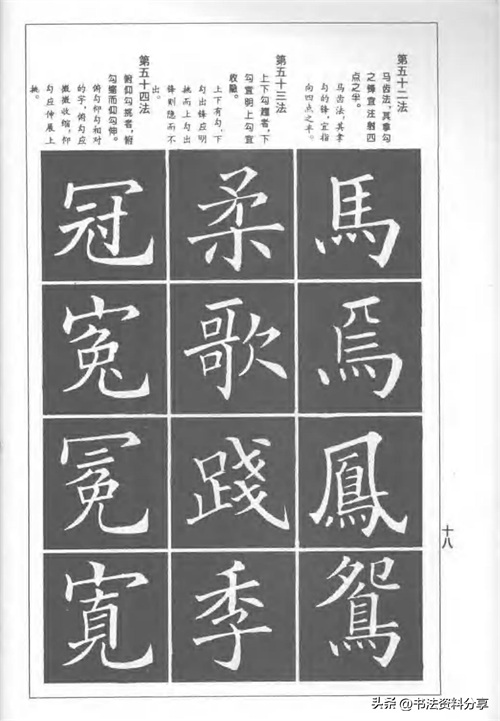 第五十二法
马齿法,其拿勾
之锋宜注射四
点之半。
马齿法,其拿
勾的锋,宜指
向四点之半。
馬
焉
鳳
鴛
第五十三法
上下勾趯者,下
勾宜明上勾宜
收隐。
上下有勾,下
勾出锋应明
挑而上勾出
锋则隐而不
出。
柔
歌
踐
季
第五十四法
俯仰勾挑者,俯
勾缩而仰勾伸。
俯勾仰勾相对
的字,俯勾应
微微收缩,仰
勾应伸展上
挑。
冠
寃
寬
十八
头条@书法资料分享